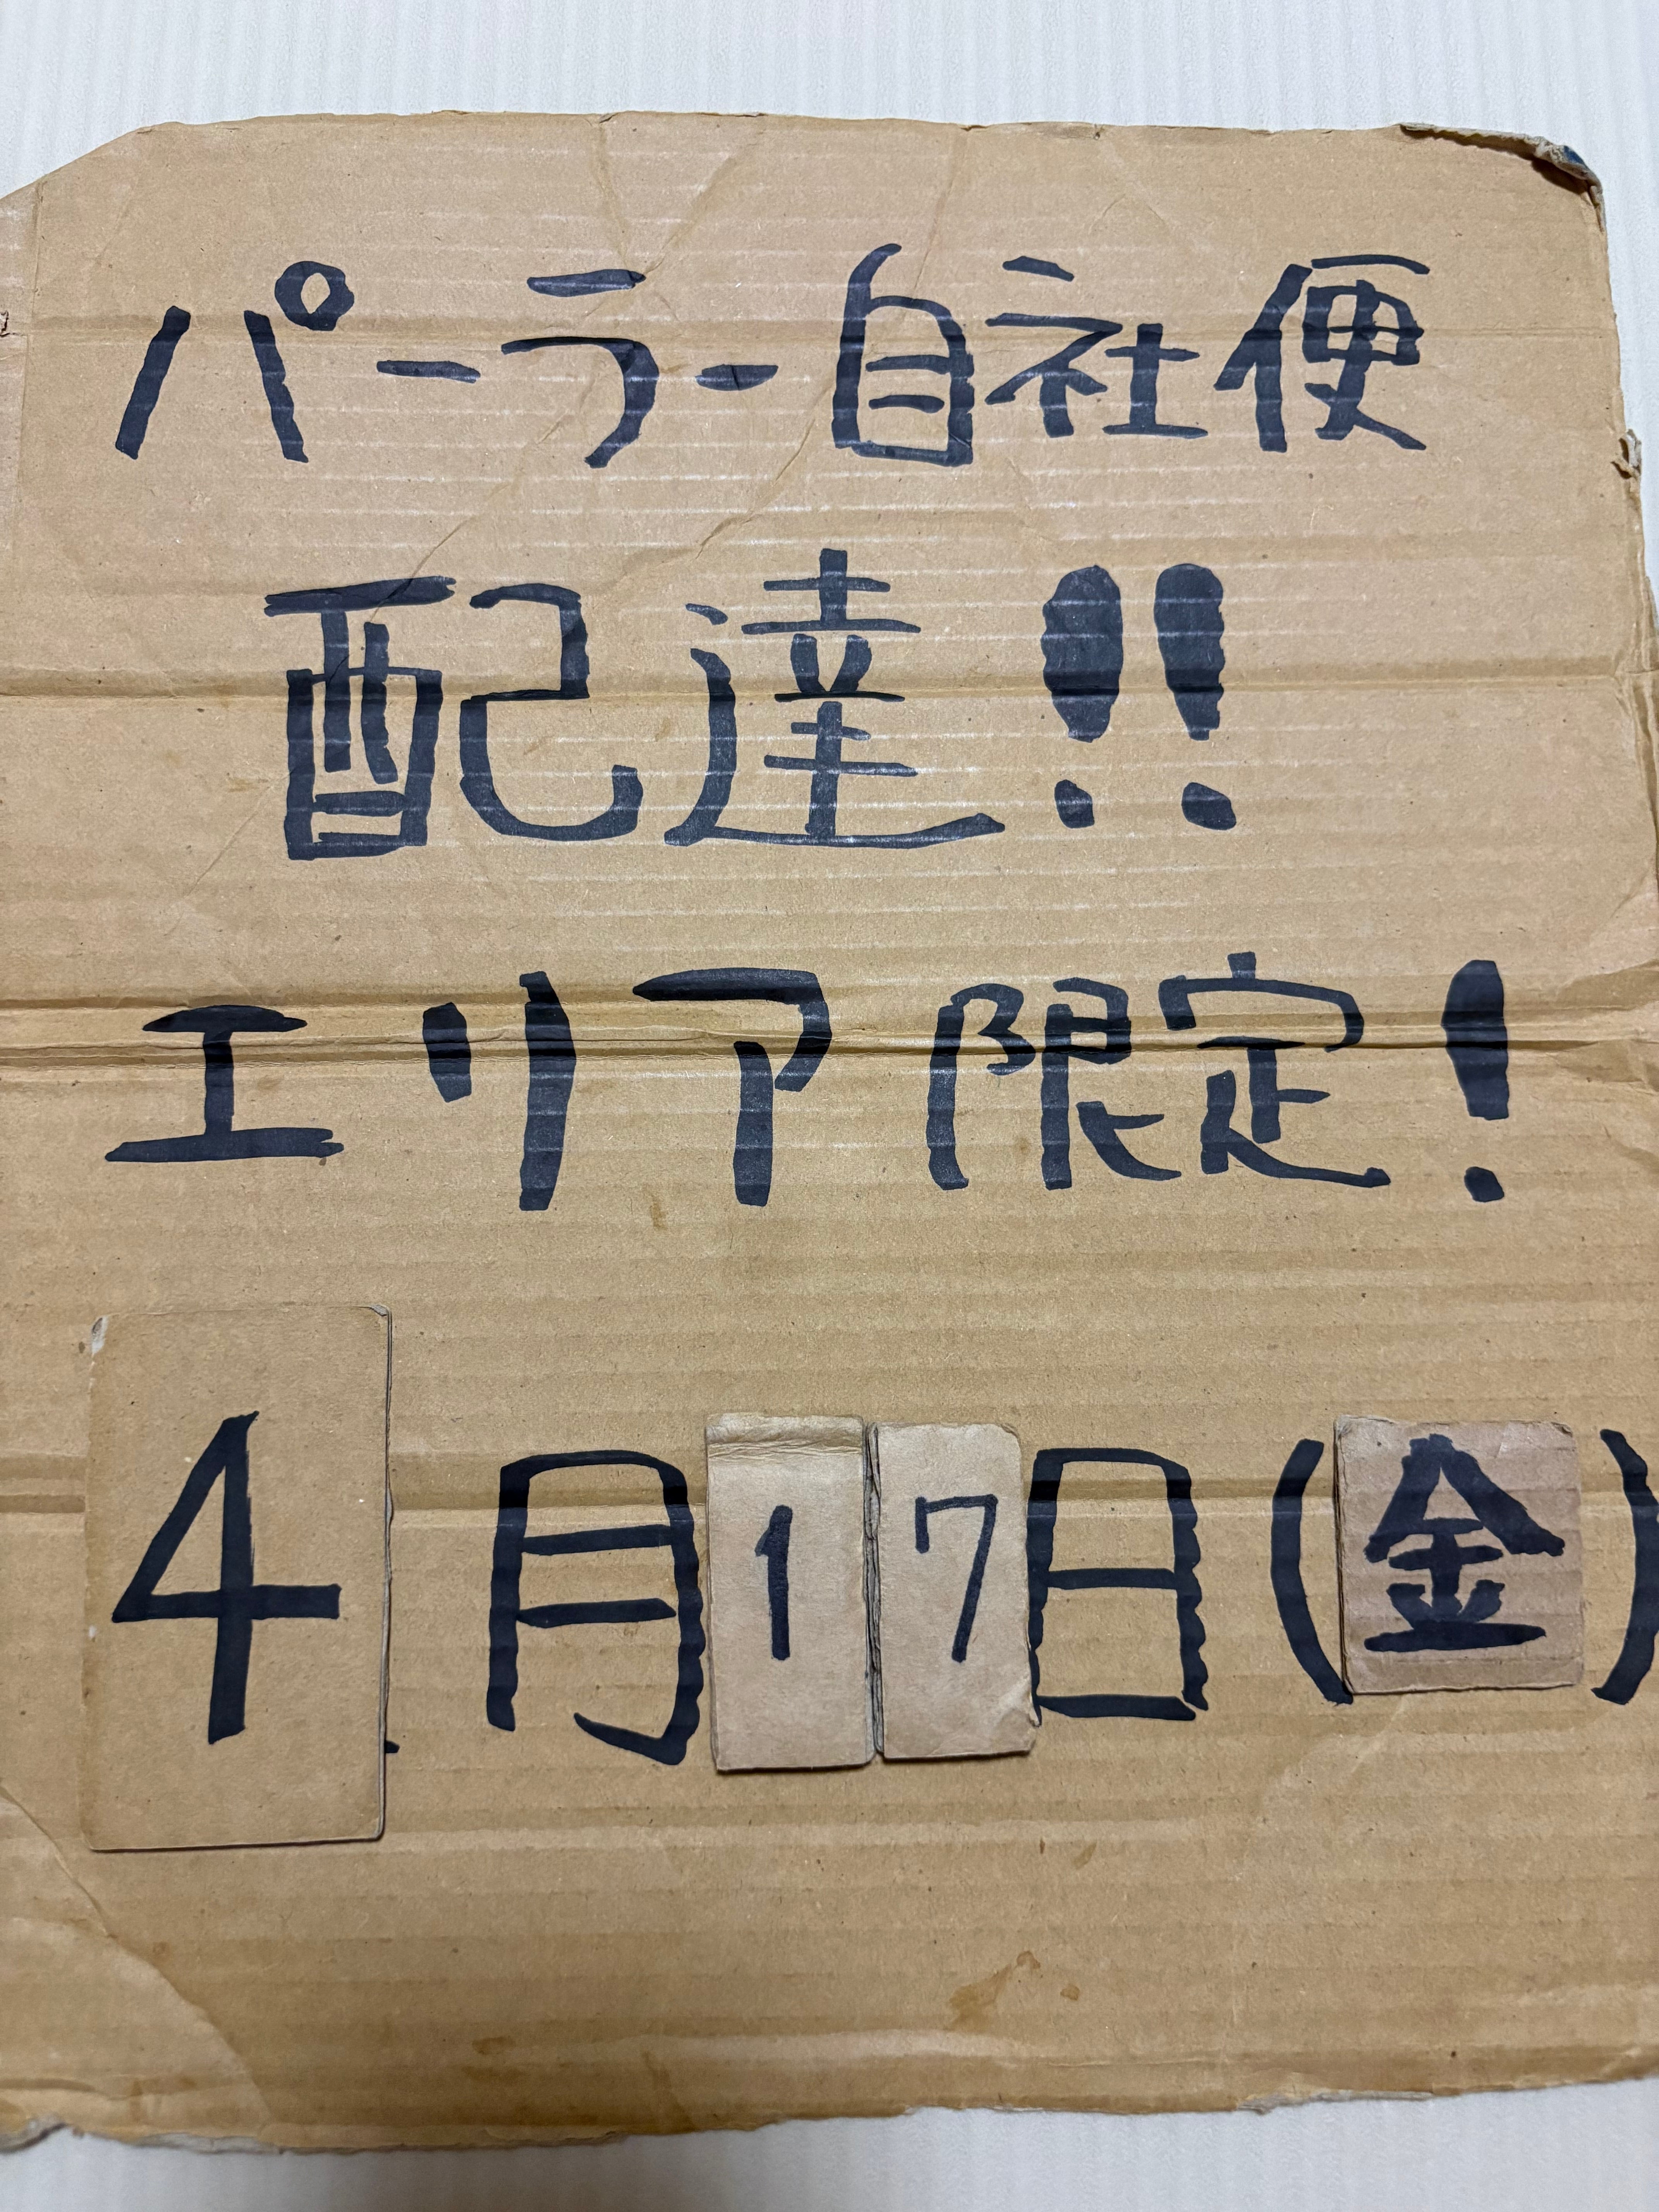 パーラー自社便
配達!!
エリア限定!
4月17日(金)